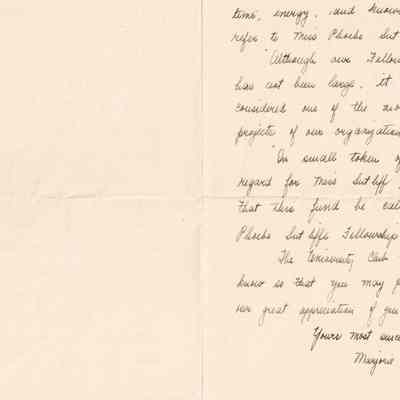 time, energy, and know
refer to Miss Phoebe Sut
"Although our Fellow
has not been large, it
considered one of the mo
projects of our organization
"In small token of
regard for Miss Sutliff,
that this fund be call
Phoebe Sutliff Fellowship
The University Club
know so that you may
our great appreciation of you
Yours most since
Marjorie